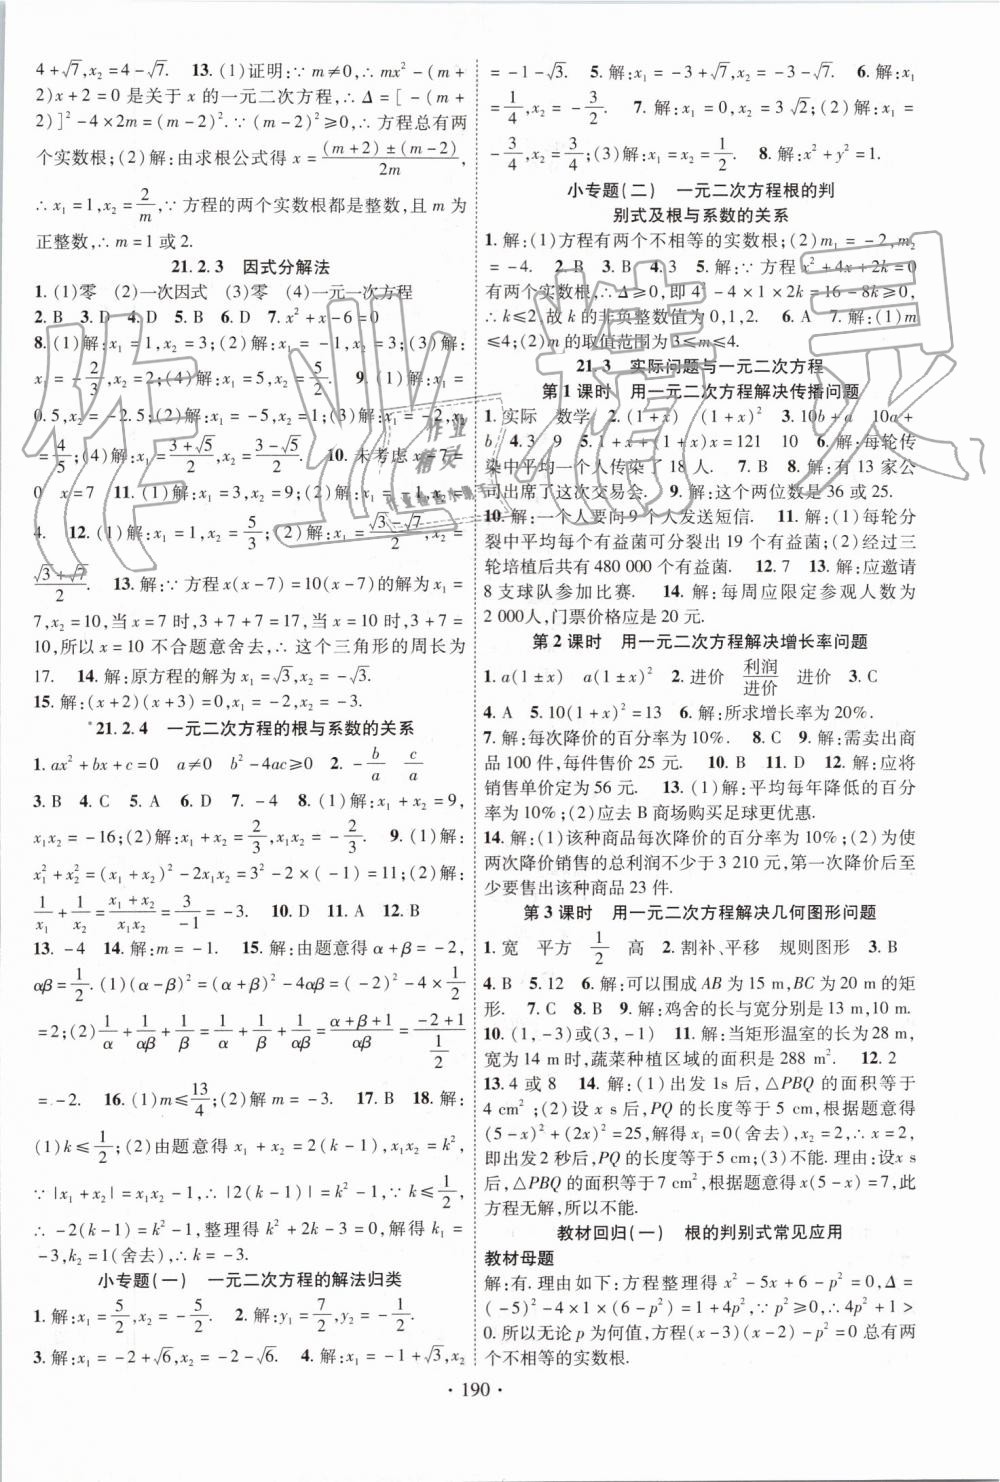 4+√7,x₂=4-√7. 13. (1)证明:∵m≠0,∴mx²-(m+
2)x+2=0 是关于 x 的一元二次方程,∴Δ=[-(m+
2)]²-4×2m=(m-2)².∵(m-2)²≥0,∴方程总有两
个实数根;(2)解:由求根公式得 x=((m+2)±(m-2))/2m,
∴x₁=1,x₂=2/m,∵方程的两个实数根都是整数,且 m 为
正整数,∴m=1 或 2.
21.2.3 因式分解法
1. (1)零 (2)一次因式 (3)零 (4)一元一次方程
2. B 3. D 4. D 5. B 6. D 7. x²+x-6=0
8. (1)解:x₁=1,x₂=3;(2)解:x₁=-1,x₂=3;(3)解:
x₁=-2/3,x₂=2;(4)解:x₁=5,x₂=5/2. 9. (1)解:x₁=
0.5,x₂=-2.5;(2)解:x₁=x₂=1;(3)解:x₁=-2,x₂
=4/5;(4)解:x₁=(3+√5)/2,x₂=(3-√5)/2. 10. 未考虑 x-7=
0 x=7 11. (1)解:x₁=3,x₂=9;(2)解:x₁=2,x₂=
4. 12. (1)解:x₁=1,x₂=5/3;(2)解:x₁=(√3-√7)/2,x₂=
(√3+√7)/2. 13. 解:∵方程x(x-7)=10(x-7)的解为x₁=
7,x₂=10,当 x=7 时,3+7+7=17,当 x=10,3+7=
10,所以 x=10 不合题意舍去,∴这个三角形的周长为
17. 14. 解:原方程的解为 x₁=√3,x₂=-√3.
15. 解:(x+2)(x+3)=0,x₁=-2,x₂=-3.
*21.2.4 一元二次方程的根与系数的关系
1. ax²+bx+c=0 a≠0 b²-4ac≥0 2. -b/a c/a
3. B 4. C 5. A 6. D 7. -4 8. (1)解:x₁+x₂=9,
x₁x₂=-16;(2)解:x₁+x₂=2/3,x₁x₂=-2/3. 9. (1)解:
x₁²+x₂²=(x₁+x₂)²-2x₁x₂=3²-2×(-1)=11;(2)解:
1/x₁+1/x₂=(x₁+x₂)/x₁x₂=3/-1=-3. 10. D 11. A 12. B
13. -4 14. 解:m=-1. 15. 解:由题意得 α+β=-2,
αβ=1/2.(1)(α-β)²=(α+β)²-4αβ=(-2)²-4×1/2
=2;(2)1/α+1/αβ+1/β=1/α+1/β+1/αβ=(α+β+1)/αβ=(-2+1)/(1/2)
=-2. 16. (1)m≤13/4;(2)解 m=-3. 17. B 18. 解:
(1)k≤1/2;(2)由题意得 x₁+x₂=2(k-1),x₁x₂=k²,
∵|x₁+x₂|=x₁x₂-1,∴|2(k-1)|=k²-1,∵k≤1/2,
∴-2(k-1)=k²-1,整理得 k²+2k-3=0,解得 k₁=
-3,k₂=1(舍去),∴k=-3.
小专题(一) 一元二次方程的解法归类
1. 解:x₁=5/2,x₂=-5/2. 2. 解:y₁=7/2,y₂=-1/2.
3. 解:x₁=-2+√6,x₂=-2-√6. 4. 解:x₁=-1+√3,x₂
=-1-√3. 5. 解:x₁=-3+√7,x₂=-3-√7. 6. 解:x₁
=1/4,x₂=-3/2. 7. 解:x₁=0,x₂=3√2;(2)解:x₁=
-3/4,x₂=3/4;(3)解:x₁=x₂=1/2. 8. 解:x²+y²=1.
小专题(二) 一元二次方程根的判
别式及根与系数的关系
1. 解:(1)方程有两个不相等的实数根;(2)m₁=-2,m₂
=-4. 2. B 3. B 4. 3 5. 解:∵方程 x²+4x+2k=0
有两个实数根,∴Δ≥0,即 4²-4×1×2k=16-8k≥0,
∴k≤2,故 k 的非负整数值为 0,1,2. 6. A 7. 解:(1)m
≤4;(2)m 的取值范围为 3≤m≤4.
21.3 实际问题与一元二次方程
第 1 课时 用一元二次方程解决传播问题
1. 实际 数学 2. (1+x) (1+x)² 3. 10b+a 10a+
b 4. 3 9 5. 1+x+(1+x)x=121 10 6. 解:每轮传
染中平均一个人传染了 18 人. 7. B 8. 解:有 13 家公
司出席了这次交易会. 9. 解:这个两位数是 36 或 25.
10. 解:一个人要向 9 个人发送短信. 11. 解:(1)每轮分
裂中平均每个有益菌可分裂出 19 个有益菌;(2)经过三
轮培植后共有 480 000 个有益菌. 12. 7 13. 解:应邀请
8 支球队参加比赛. 14. 解:每周应限定参观人数为
2 000人,门票价格应是 20 元.
第 2 课时 用一元二次方程解决增长率问题
1. a(1±x) a(1±x)² 2. 进价 利润/进价 3. C
4. A 5. 10(1+x)²=13 6. 解:所求增长率为 20%.
7. 解:每次降价的百分率为 10%. 8. C 9. 解:需卖出商
品 100 件,每件售价 25 元. 10. B 11. D 12. 解:应将
销售单价定为 56 元. 13. (1)解:平均每年降低的百分
率为 10%;(2)应去 B 商场购买足球更优惠.
14. 解:(1)该种商品每次降价的百分率为 10%;(2)为使
两次降价销售的总利润不少于 3 210 元,第一次降价后至
少要售出该种商品 23 件.
第 3 课时 用一元二次方程解决几何图形问题
1. 宽 平方 1/2 高 2. 割补、平移 规则图形 3. B
4. B 5. 12 6. 解:可以围成 AB 为 15 m,BC 为 20 m 的矩
形. 7. C 8. B 9. 解:鸡舍的长与宽分别是 13m,10 m.
10. (1,-3)或(3,-1) 11. 解:当矩形温室的长为 28 m,
宽为 14 m 时,蔬菜种植区域的面积是 288 m². 12. 2
13. 4 或 8 14. 解:(1)出发 1s 后,△PBQ 的面积等于
4 cm²;(2)设 x s 后,PQ 的长度等于 5 cm,根据题意得
(5-x)²+(2x)²=25,解得 x₁=0(舍去),x₂=2,∴x=2,
即出发 2 s 后,PQ 的长度等于 5 cm;(3)不能. 理由:设x s
后,△PBQ 的面积等于 7 cm²,根据题意得 x(5-x)=7,此
方程无解,所以不能.
教材回归(一) 根的判别式常见应用
教材母题
解:有. 理由如下:方程整理得 x²-5x+6-p²=0,Δ=
(-5)²-4×1×(6-p²)=1+4p²,∵p²≥0,∴4p²+1>
0.所以无论 p 为何值,方程(x-3)(x-2)-p²=0 总有两
个不相等的实数根.
· 190 ·